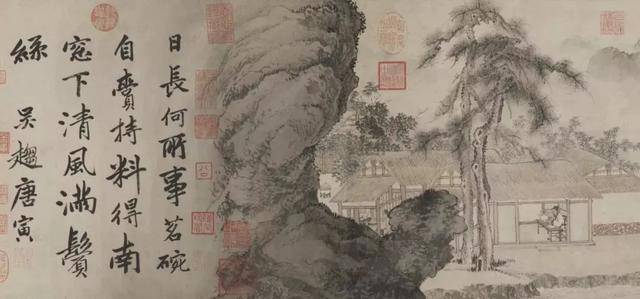 日長何所事茗碗
自賫持料得南
窓下清風滿鬢
絲 吴趨唐寅